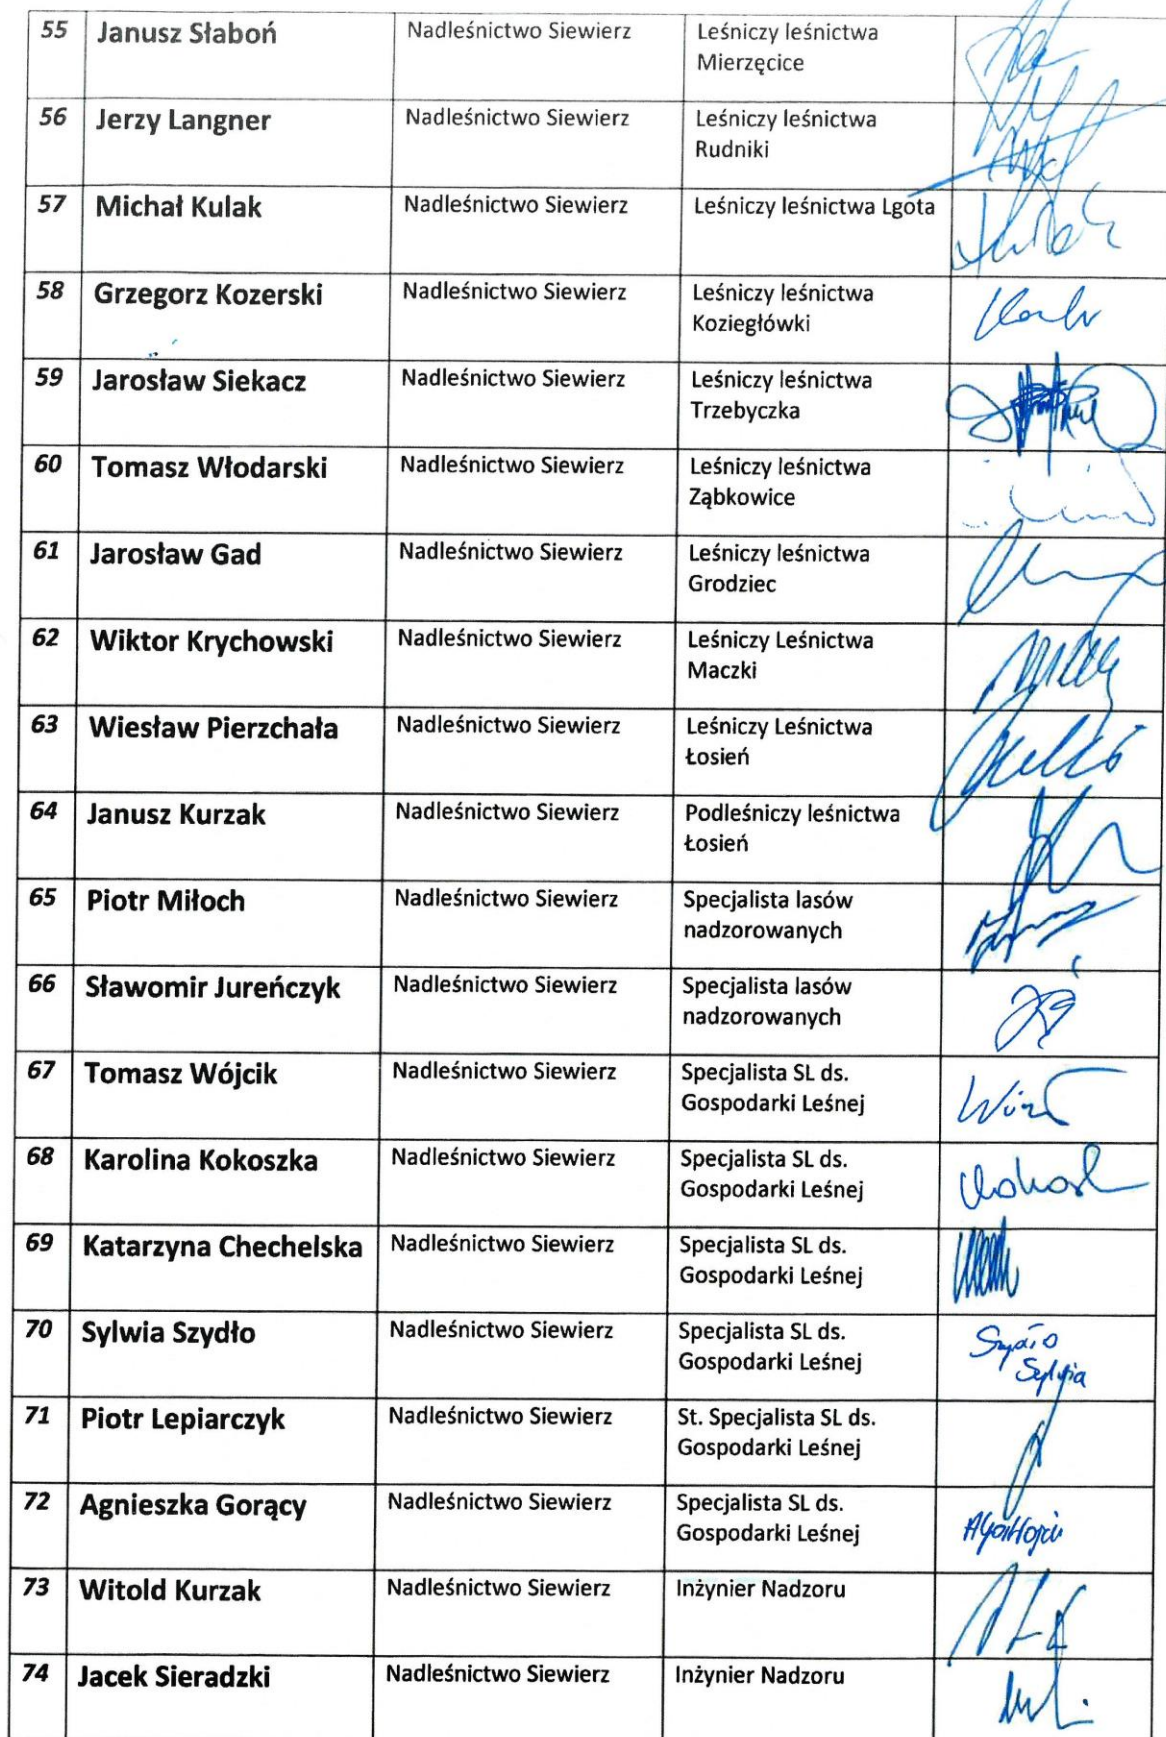 55 Janusz Słaboń Nadleśnictwo Siewierz Leśniczy leśnictwa
Mierzęcice
56 Jerzy Langner Nadleśnictwo Siewierz Leśniczy leśnictwa
Rudniki
57 Michał Kulak Nadleśnictwo Siewierz Leśniczy leśnictwa Lgota
58 Grzegorz Kozerski Nadleśnictwo Siewierz Leśniczy leśnictwa
Koziegłówki
59 Jarosław Siekacz Nadleśnictwo Siewierz Leśniczy leśnictwa
Trzebyczka
60 Tomasz Włodarski Nadleśnictwo Siewierz Leśniczy leśnictwa
Ząbkowice
61 Jarosław Gad Nadleśnictwo Siewierz Leśniczy leśnictwa
Grodziec
62 Wiktor Krychowski Nadleśnictwo Siewierz Leśniczy Leśnictwa
Maczki
63 Wiesław Pierzchała Nadleśnictwo Siewierz Leśniczy Leśnictwa
Łosień
64 Janusz Kurzak Nadleśnictwo Siewierz Podleśniczy leśnictwa
Łosień
65 Piotr Miłoch Nadleśnictwo Siewierz Specjalista lasów
nadzorowanych
66 Sławomir Jureńczyk Nadleśnictwo Siewierz Specjalista lasów
nadzorowanych
67 Tomasz Wójcik Nadleśnictwo Siewierz Specjalista SL ds.
Gospodarki Leśnej
68 Karolina Kokoszka Nadleśnictwo Siewierz Specjalista SL ds.
Gospodarki Leśnej
69 Katarzyna Chechelska Nadleśnictwo Siewierz Specjalista SL ds.
Gospodarki Leśnej
70 Sylwia Szydło Nadleśnictwo Siewierz Specjalista SL ds. Szydło
Gospodarki Leśnej Sylwia
71 Piotr Lepiarczyk Nadleśnictwo Siewierz St. Specjalista SL ds.
Gospodarki Leśnej
72 Agnieszka Gorący Nadleśnictwo Siewierz Specjalista SL ds.
Gospodarki Leśnej
73 Witold Kurzak Nadleśnictwo Siewierz Inżynier Nadzoru
74 Jacek Sieradzki Nadleśnictwo Siewierz Inżynier Nadzoru